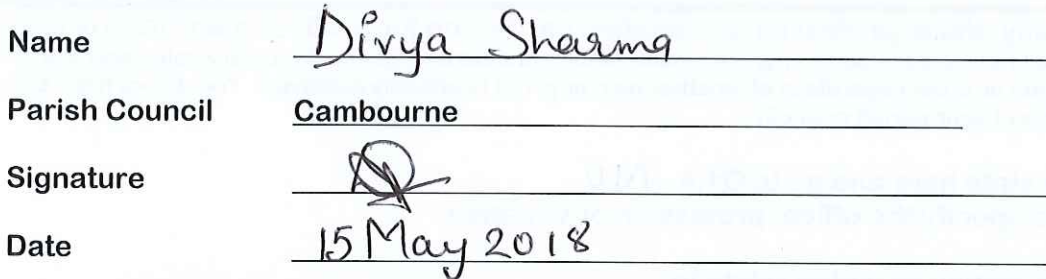 Name Divya Sharma
Parish Council Cambourne
Signature
Date 15 May 2018